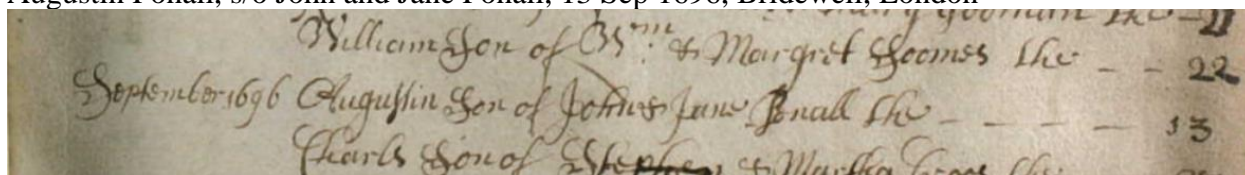 William Son of Wm & Margret Soomes the - - 22
September 1696 Augustin Son of John & Jane Ponall the - - - - - 13
Charls Son of Stephen & Martha the